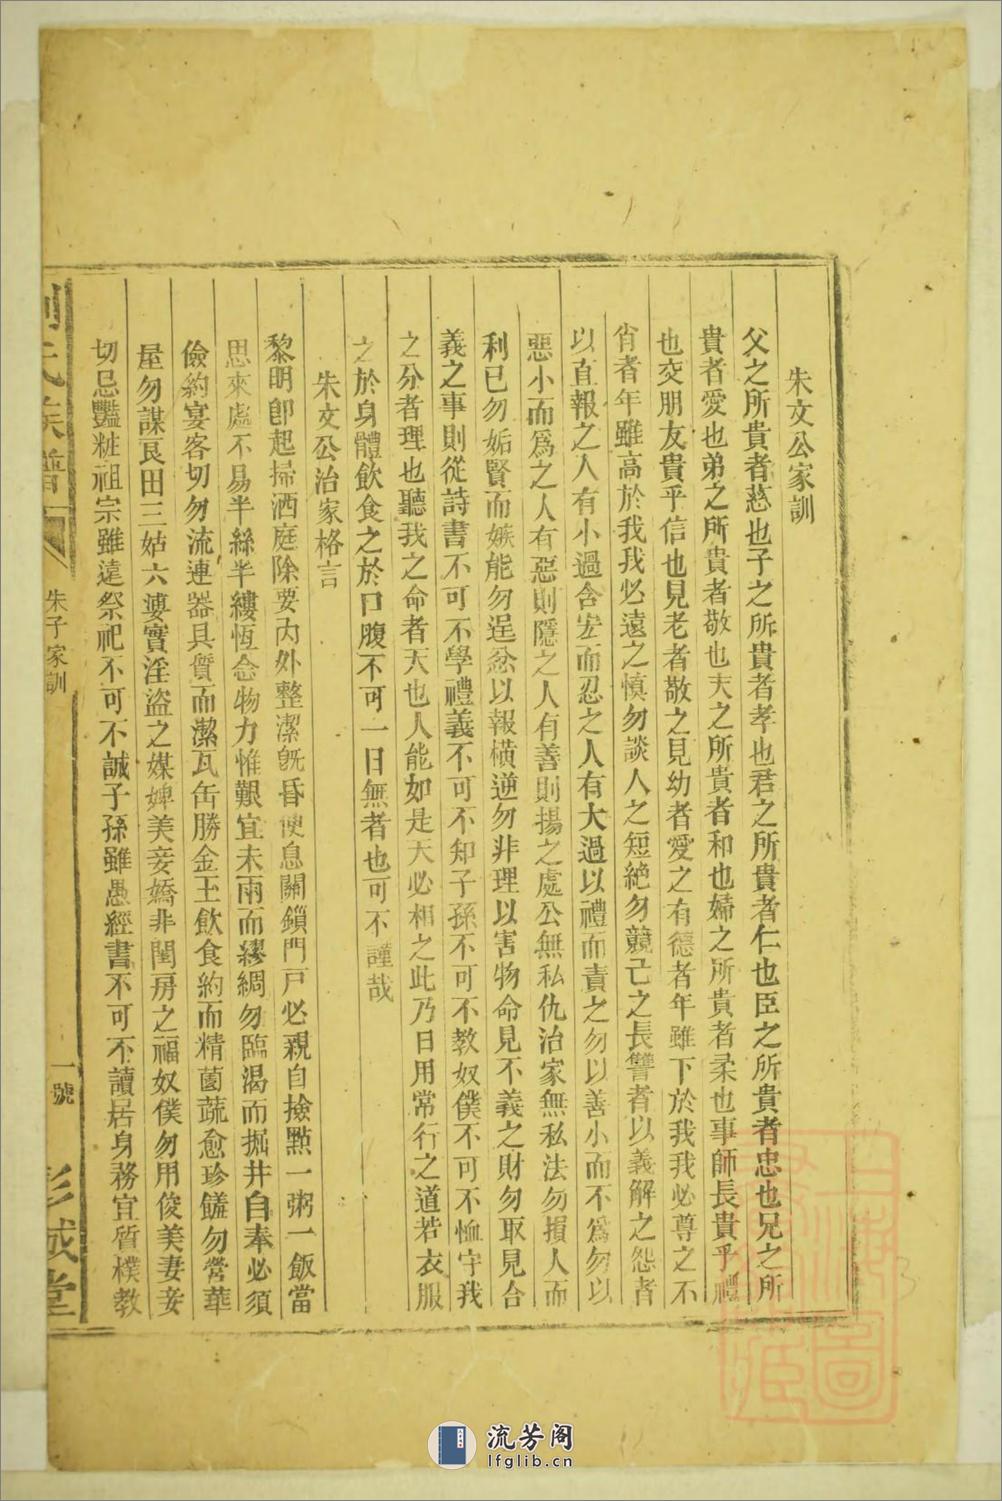 朱文公家訓
父之所貴者慈也子之所貴者孝也君之所貴者仁也臣之所貴者忠也兄之所
貴者愛也弟之所貴者敬也夫之所貴者和也婦之所貴者柔也事師長貴乎禮
也交朋友貴乎信也見老者敬之見幼者愛之有德者年雖下於我我必尊之不
肖者年雖高於我我必遠之慎勿談人之短絕勿競己之長讐者以義解之怨者
以直報之人有小過含宏而忍之人有大過以禮而責之勿以善小而不為勿以
惡小而為之人有惡則隱之人有善則揚之處公無私仇治家無私法勿損人而
利己勿妬賢而嫉能勿逞忿以報橫逆勿非理以害物命見不義之財勿取見合
義之事則從詩書不可不學禮義不可不知子孫不可不教奴僕不可不恤守我
之分者理也聽我之命者天也人能如是天必相之此乃日用常行之道若衣服
之於身體飲食之於口腹不可一日無者也可不謹哉
朱文公治家格言
黎明卽起掃洒庭除要內外整潔旣昏便息關鎖門戶必親自撿點一粥一飯當
思來處不易半絲半縷恆念物力惟艱宜未雨而繆綢勿臨渴而掘井自奉必須
儉約宴客切勿流連器具質而潔瓦缶勝金玉飲食約而精園蔬愈珍饈勿營華
屋勿謀良田三姑六婆實淫盜之媒婢美妾嬌非閨房之福奴僕勿用俊美妻妾
切忌豔粧祖宗雖遠祭祀不可不誠子孫雖愚經書不可不讀居身務宜質樸教
劉氏族譜
朱子家訓
一號
彭城堂
流芳阁
lfglib.cn